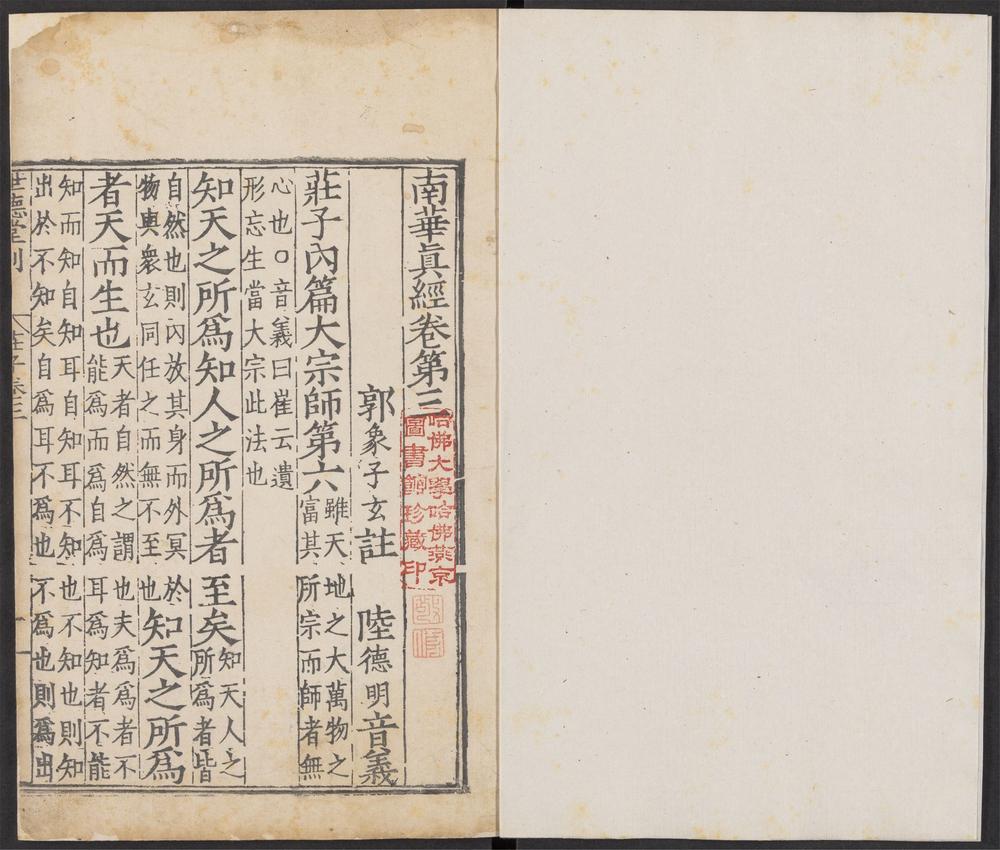 南華眞經卷第三
郭象子玄註　陸德明音義
莊子內篇大宗師第六雖天地之大萬物之
富其所宗而師者無
心也○音義曰崔云遺
形忘生當大宗此法也
知天之所爲知人之所爲者至矣知天人之
所爲者皆
自然也則內放其身而外冥於
物與衆玄同任之而無不至也
知天之所爲
者天而生也天者自然之謂也夫爲爲者不
能爲而爲自爲耳爲知者不能
知而知自知耳自知耳不知也不知也則知
出於不知矣自爲耳不爲也不爲也則爲出
世德堂刊
莊子卷三
一
哈佛大學哈佛燕京
圖書館珍藏印